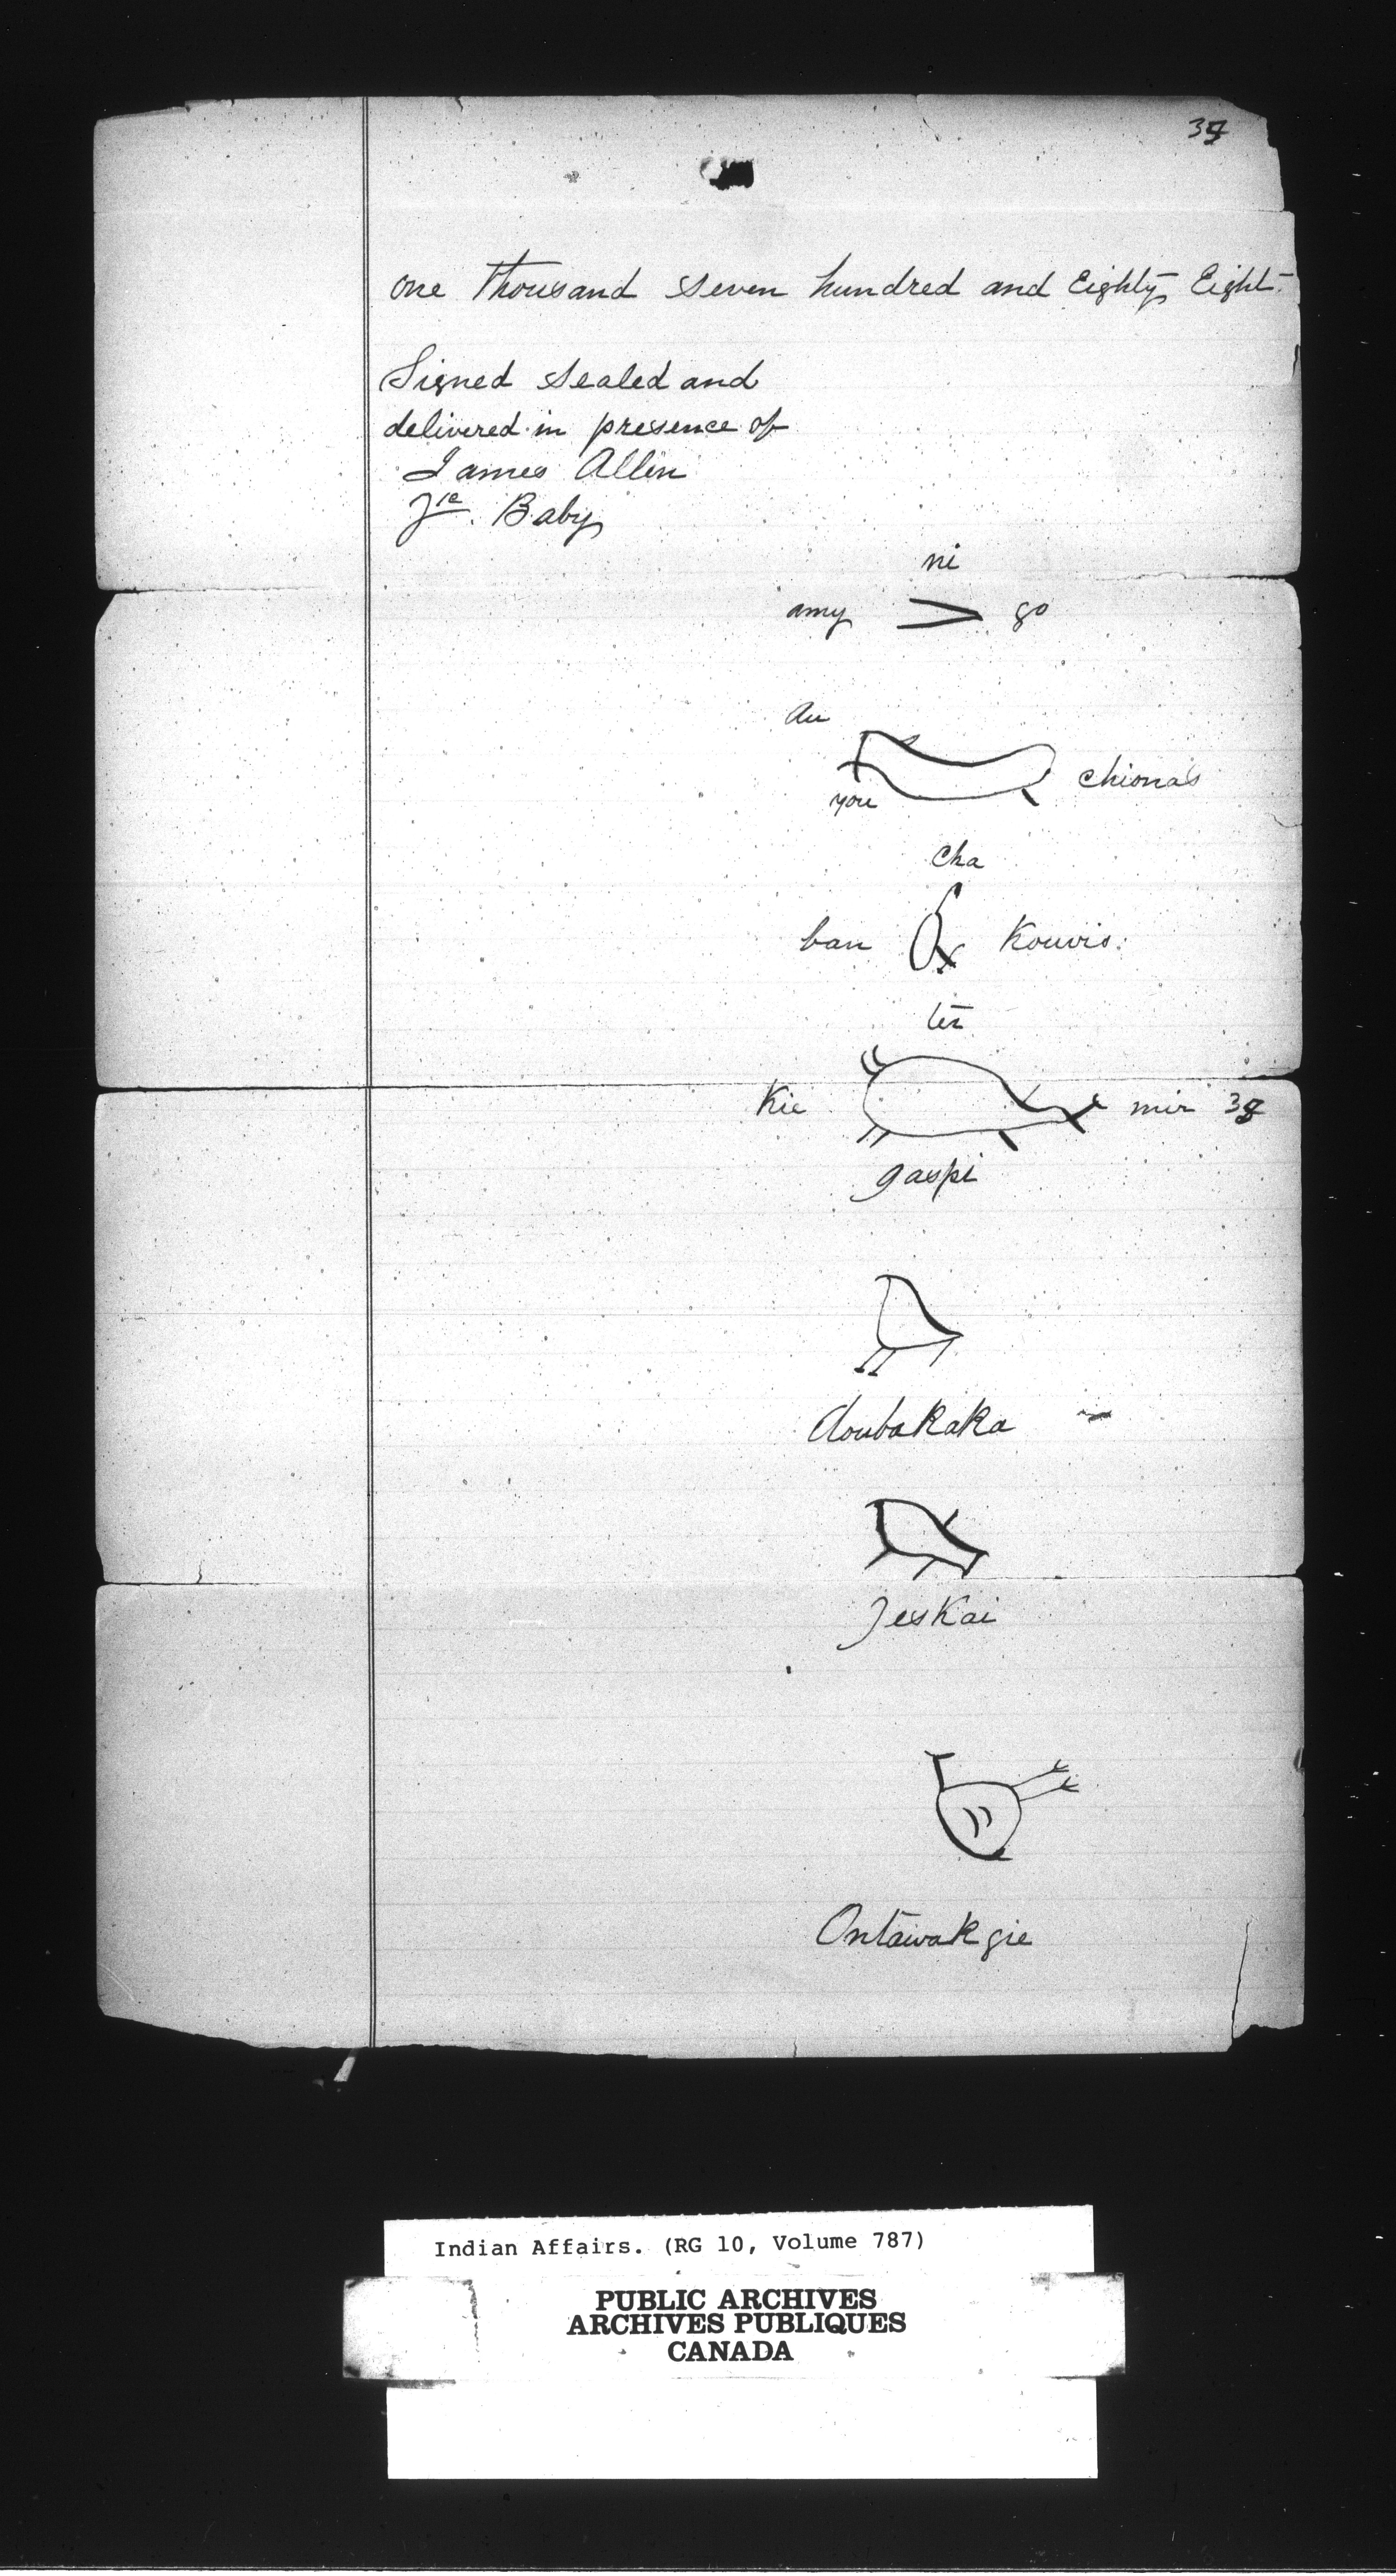 one thousand seven hundred and Eighty Eight.
Signed Sealed and
delivered in presence of
James Allen
Jte. Baby
ni
amy go
au
chionas
you
cha
ban Kouvis.
ter
Kie mir 38
gaspi
doubaKaKa
JesKai
OntawaK gie
Indian Affairs. (RG 10, Volume 787)
PUBLIC ARCHIVES
ARCHIVES PUBLIQUES
CANADA